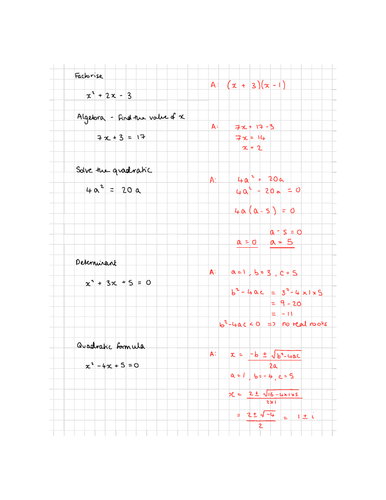 Factorise
x² + 2x - 3
A: (x + 3)(x - 1)
Algebra - Find the value of x
7x + 3 = 17
A: 7x = 17 - 3
7x = 14
x + 2
Solve the quadratic
4a² = 20a
A: 4a² = 20a
4a² - 20a = 0
4a(a - 5) = 0
a - 5 = 0
a = 0 a = 5
Determinant
x² + 3x + 5 = 0
A: a = 1, b = 3, c = 5
b² - 4ac = 3² - 4 x 1 x 5
= 9 - 20
= -11
b² - 4ac < 0 => no real roots
Quadratic formula
x² - 4x + 5 = 0
A: x = -b ± √b² - 4ac
2a
a = 1, b = -4, c = 5
x = 2 ± √16 - 4x1x5
2x1
= 2 ± √-4 = 1 ± i
2